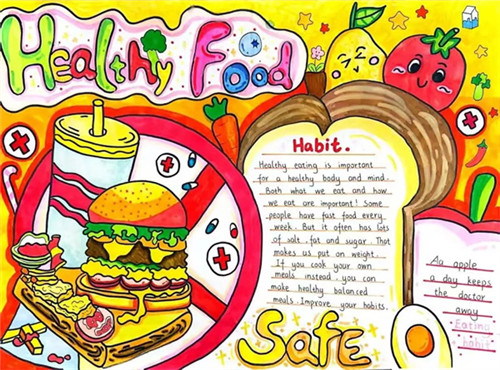 Healthy Food
Habit.
Healthy eating is important
for a healthy body and mind.
Both what we eat and how
we eat are important! Some
people have fast food every
week. But it often has lots
of salt, fat and sugar. That
makes us put on weight.
If you cook your own
meals instead, you can
make healthy balanced
meals. Improve your habits.
Aa apple
a day keeps
the doctor
away
Eating
habit
Safe